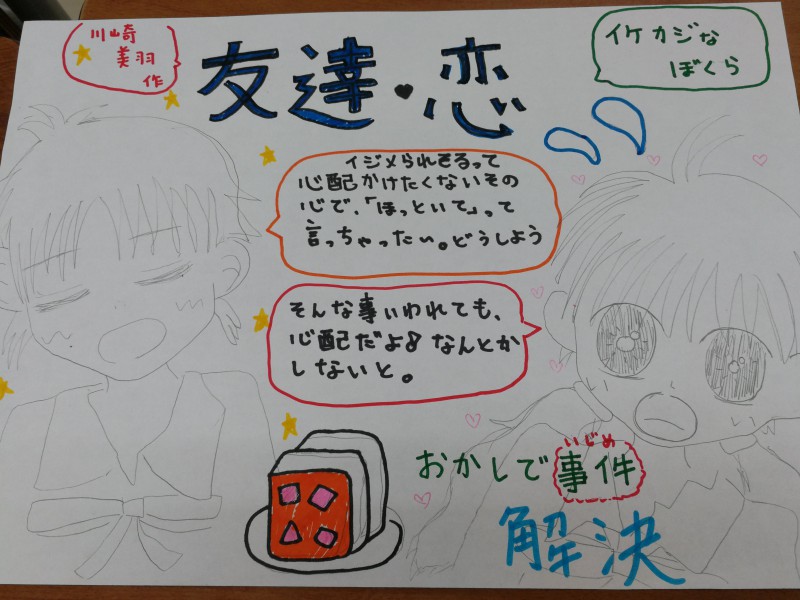 川崎
美羽
作
友達・恋
イケカジな
ぼくら
イジメられてるって
心配かけたくないその
心で、「ほっといて」って
言っちゃったぃ。どうしよう
そんな事いわれても、
心配だよ なんとか
しないと。
いじめ
おかしで事件
解決